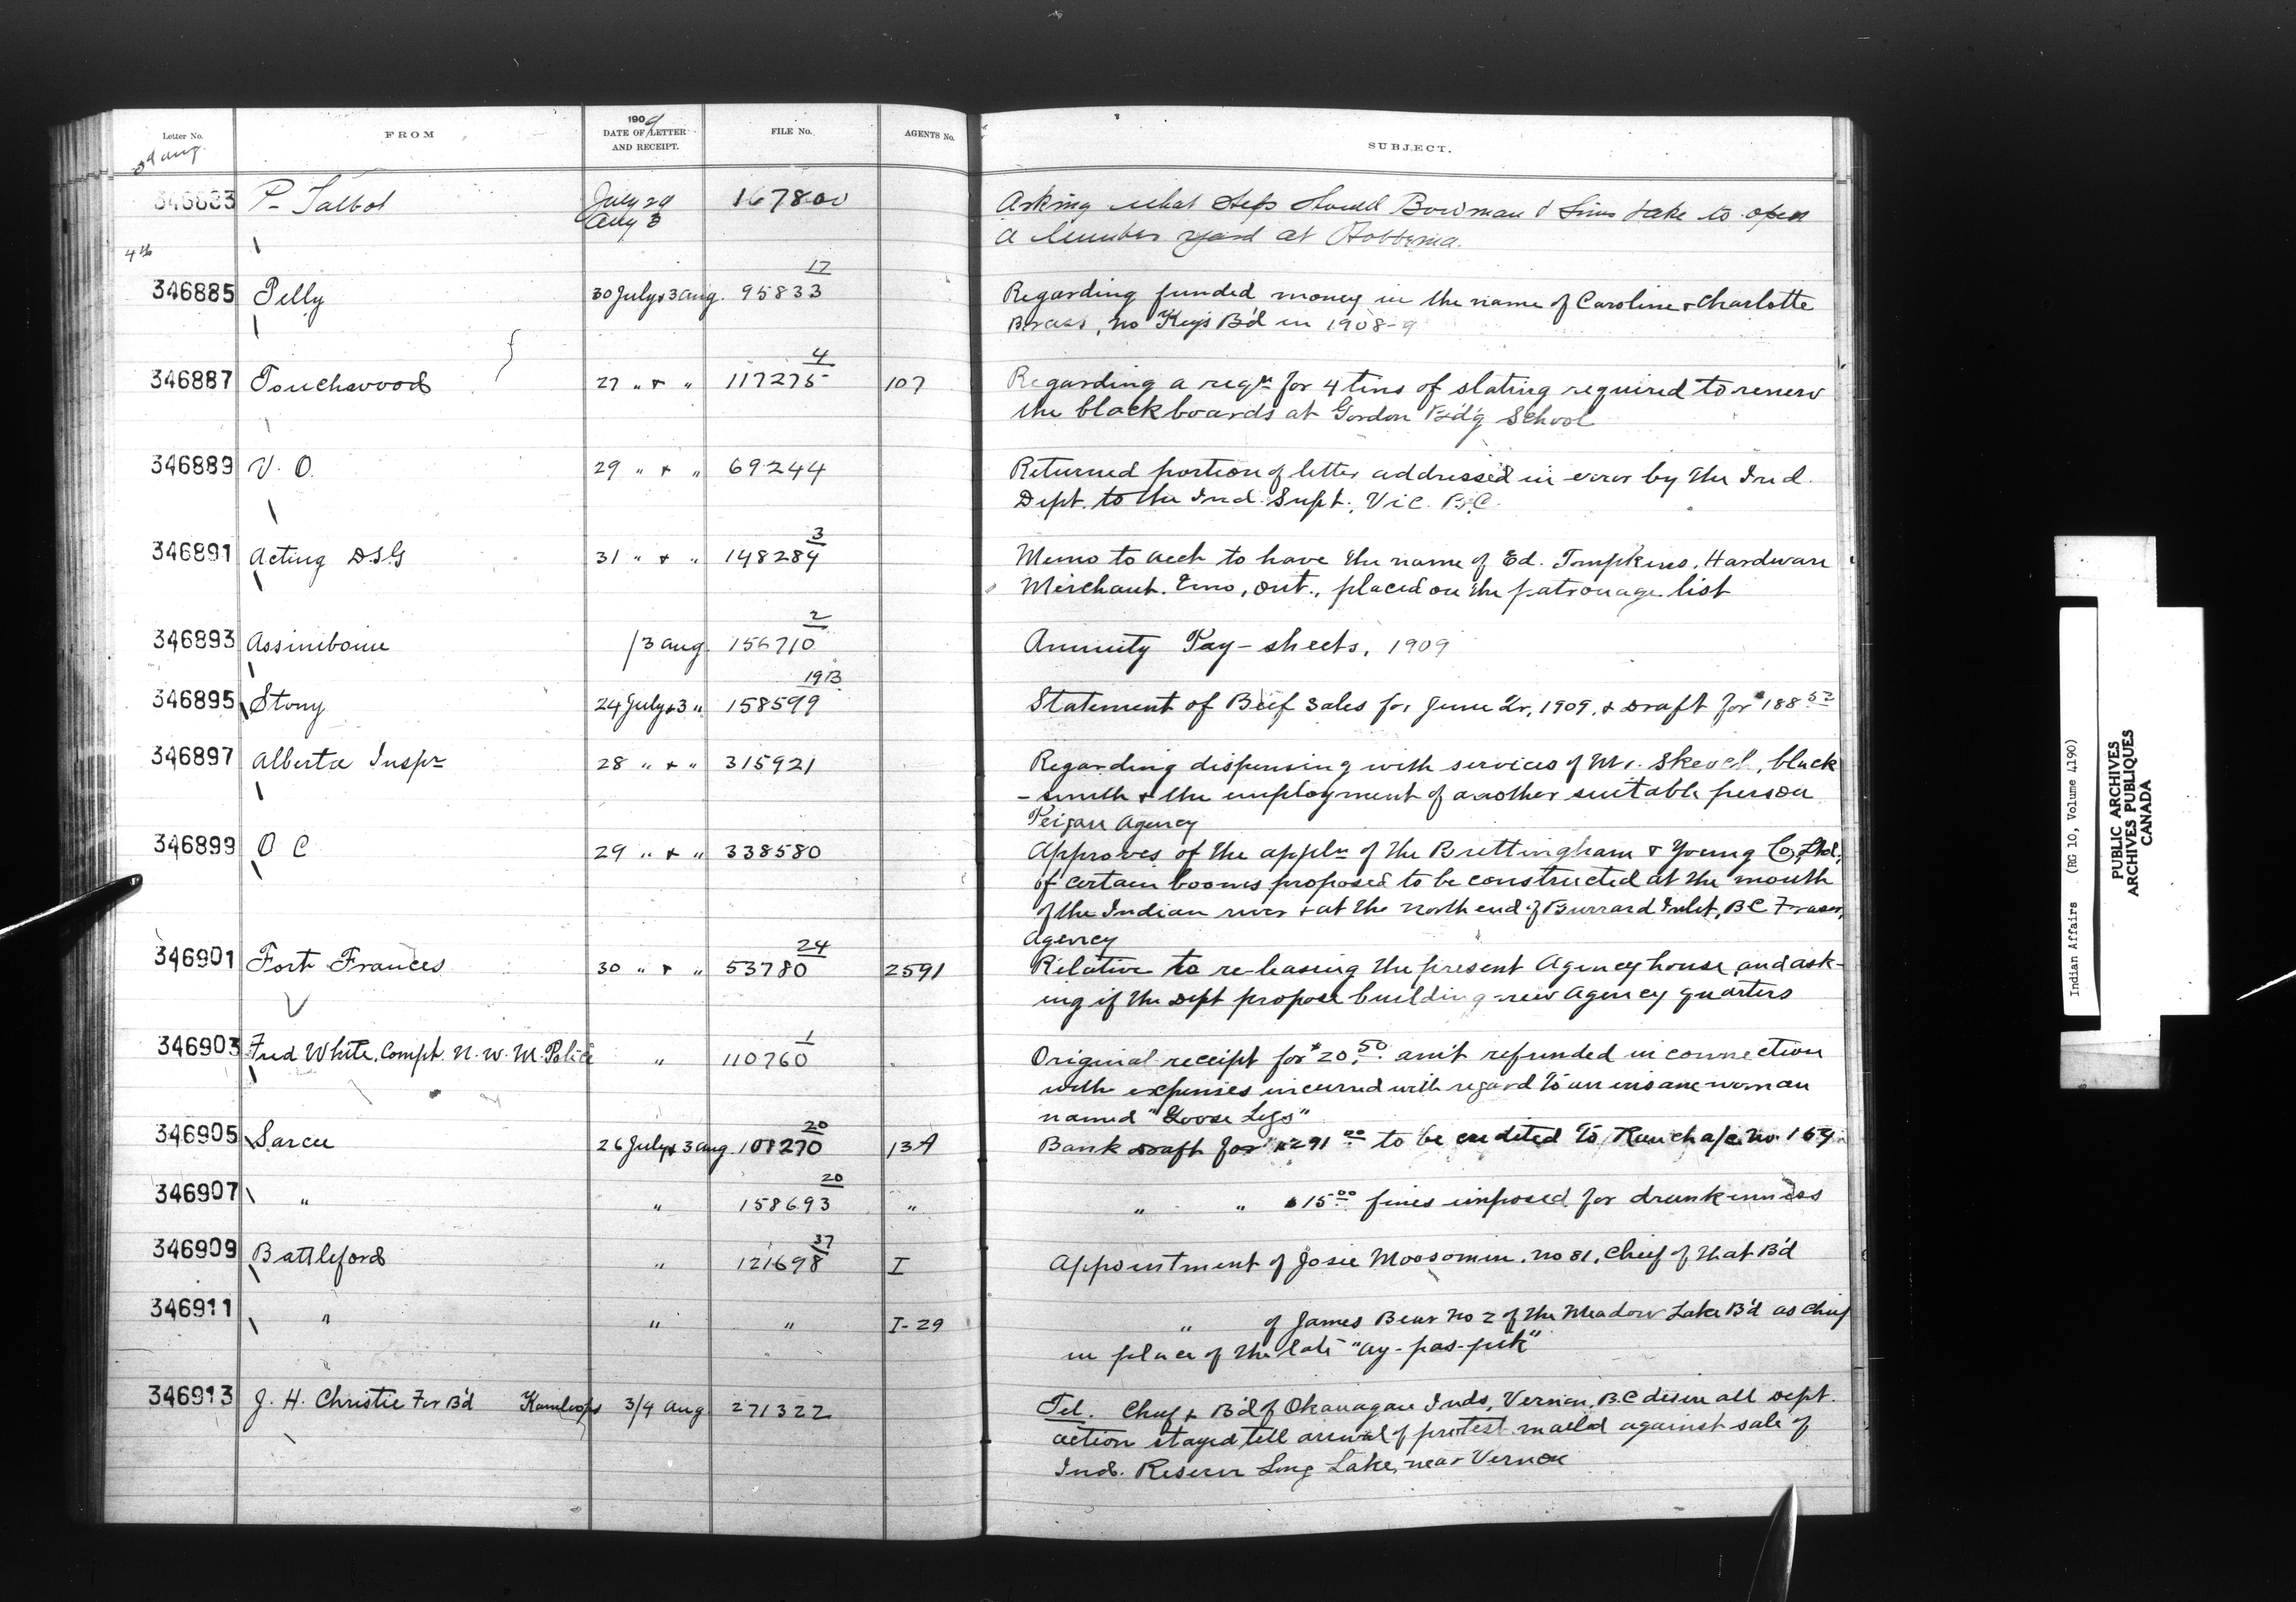 Letter No.
FROM
1909
DATE OF LETTER
AND RECEIPT.
FILE No.
AGENTS No.
SUBJECT.
3d Aug.
346883 P. Talbot July 29 Aug 3 167800 Asking what steps should Bowman & Sims take to open
a lumber yard at Hobbema.
4th
346885 Pelly 30 July & 3 Aug. 95833 17 Regarding funded money in the name of Caroline & Charlotte
Brass, no Keys B'd in 1908-9
346887 Touchwood 27 " & " 117275 4 107 Regarding a reqn for 4 tins of slating required to renew
the blackboards at Gordon B'd'g School
346889 V. O. 29 " & " 69244 Returned portion of letter addressed in error by the Ind.
Dept. to the Ind. Supt., Vic. B.C.
346891 Acting D.S.G 31 " & " 148284 3 Memo to Acct to have the name of Ed. Tompkins, Hardware
Merchant, Emo, Ont., placed on the patronage list
346893 Assiniboine /3 Aug. 156710 2 Annuity Pay-sheets, 1909
346895 Stony 24 July & 3 " 158599 19B Statement of Beef Sales for June Qr, 1909, & Draft for $188
346897 Alberta Inspr 28 " & " 315921 Regarding dispensing with services of Mr. , black
- smith & the employment of another suitable person
Peigan Agency
346899 O C 29 " & " 338580 Approves of the appln of the Brettingham & Young Co. Ltd.,
of certain booms proposed to be constructed at the mouth
of the Indian river & at the north end of Burrard Inlet, BC Fraser
Agency
346901 Fort Frances 30 " & " 53780 24 2591 Relative to re-leasing the present Agency house, and ask-
ing if the Dept propose building new Agency quarters
346903 Fred White, Compt. N. W. M. Police " 110760 1 Original receipt for $20.50 am't refunded in connection
with expenses incurred with regard to an insane woman
named "Goose Legs"
346905 Sarcee 26 July & 3 Aug. 108270 20 13A Bank Draft for $291.00 to be credited to Ranch a/c no. 164
346907 " " 158693 20 " " " $15.00 fines imposed for drunkenness
346909 Battleford " 121698 37 I Appointment of Josie Moosomin, no 81, Chief of that B'd
346911 " " " I-29 " of James Bear no 2 of the Meadow Lake B'd as Chief
in place of the late "Ay-pas-pik"
346913 J. H. Christie For B'd Kamloops 3/4 Aug. 271322 Tel. Chief & B'd of Okanagan Inds, Vernon, B.C desire all Dept.
action stayed till arrival of protest mailed against sale of
Ind. Reserve Long Lake, near Vernon
Indian Affairs (RG 10, Volume 4190)
PUBLIC ARCHIVES
ARCHIVES PUBLIQUES
CANADA